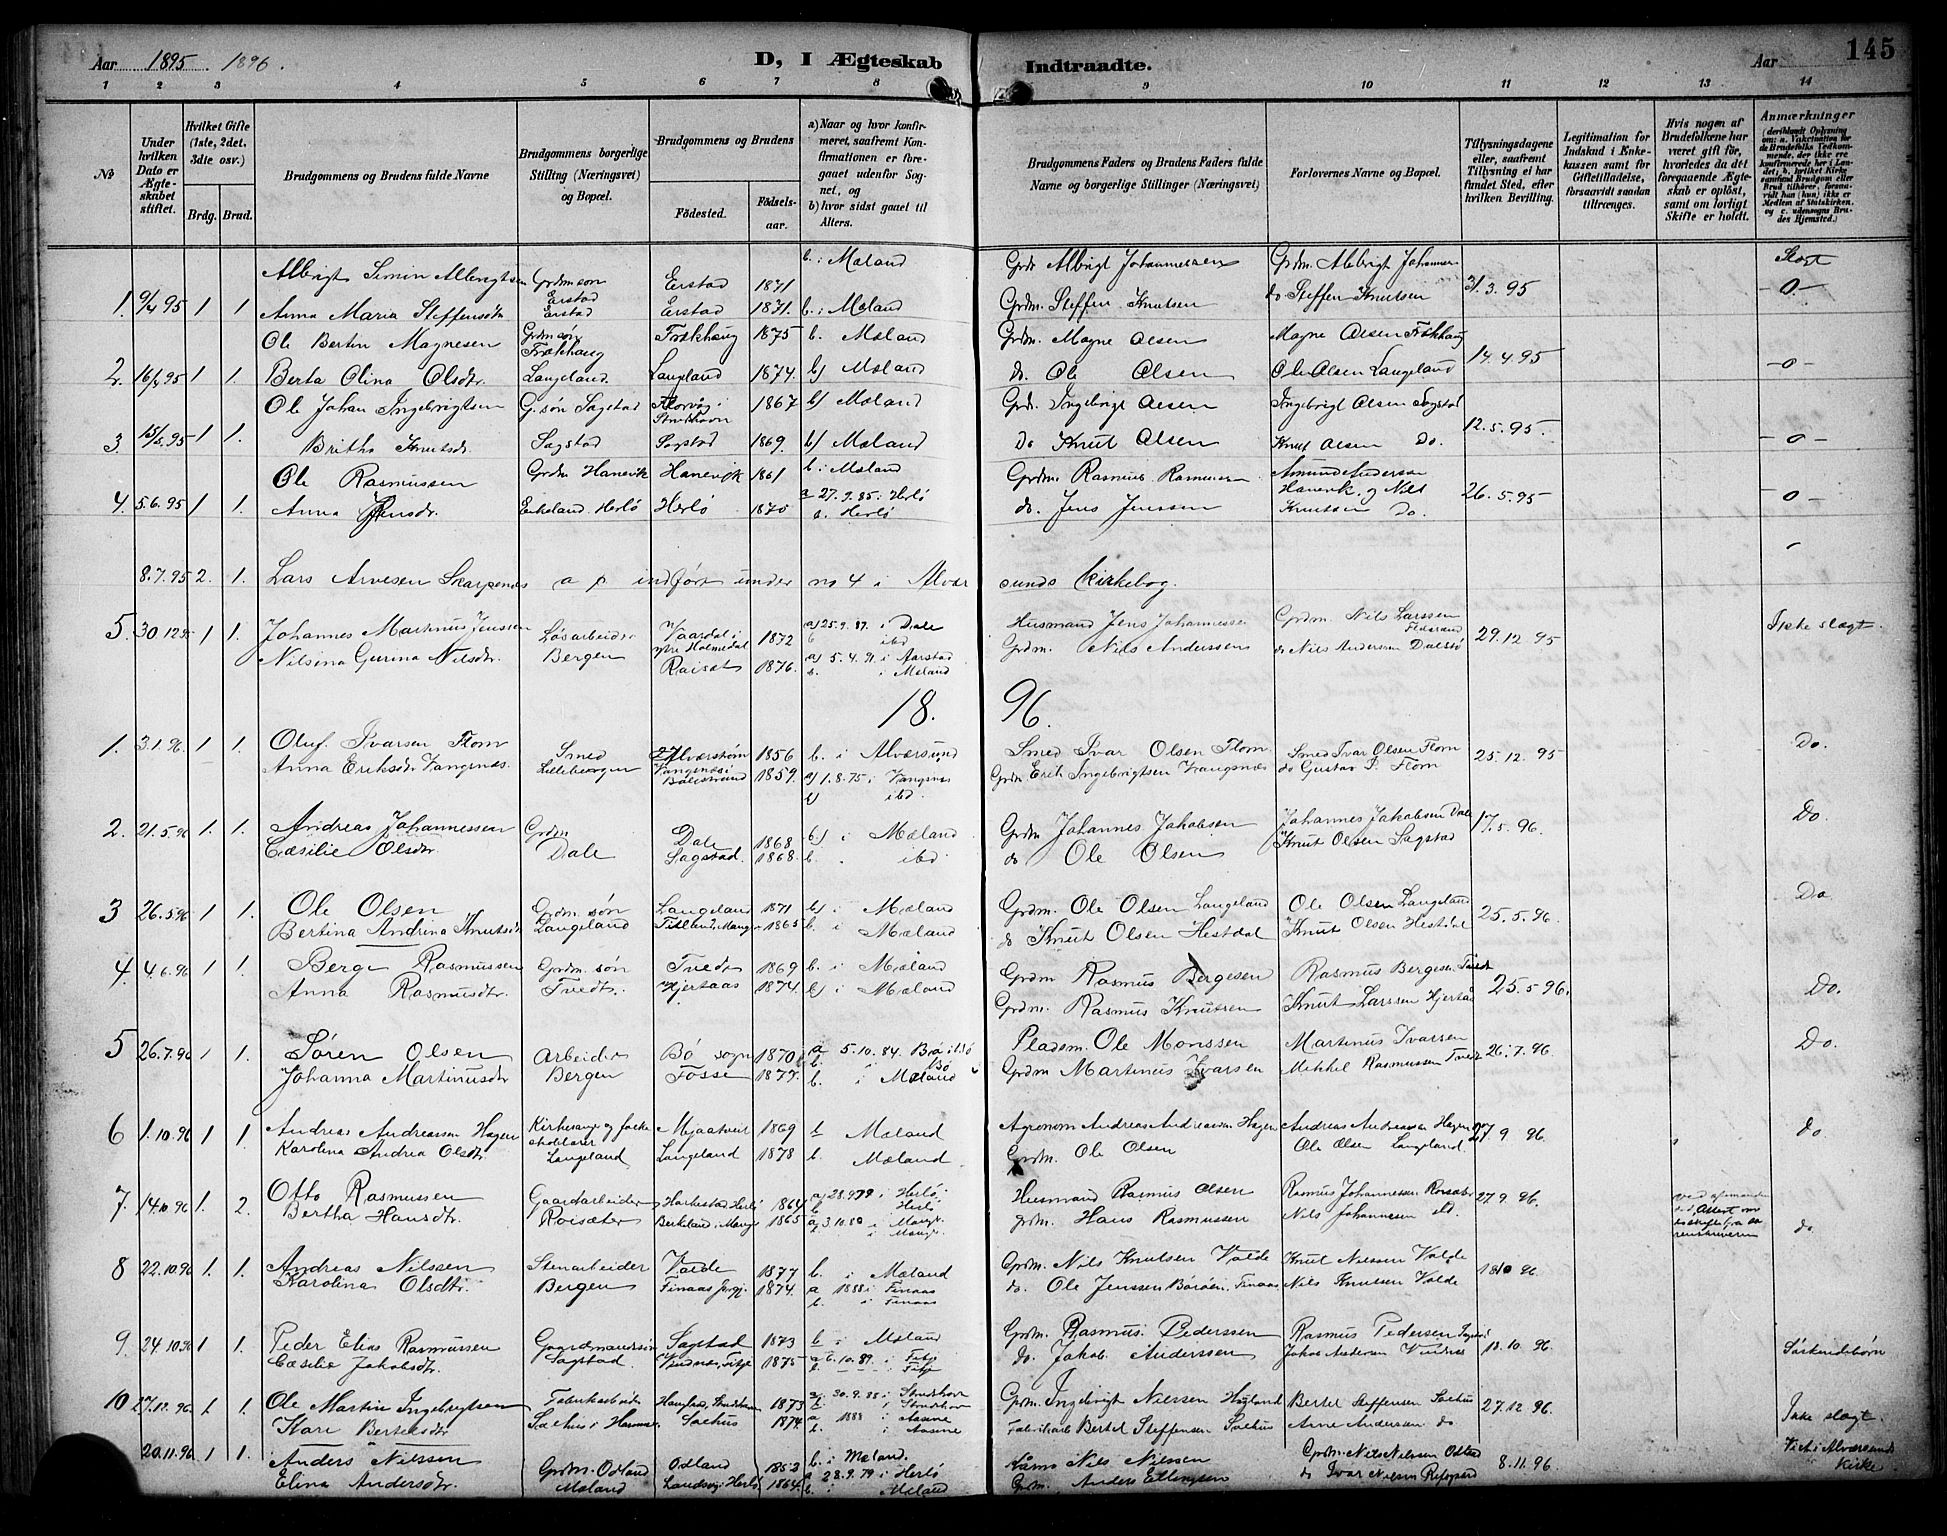 Aar 1895 1896.
D, I Ægteskab Indtraadte.
Aar
145
1 2 3 4 5 6 7 8 9 10 11 12 13 14
No
Under hvilken Dato er Ægteskabet stiftet.
Hvilket Gifte (1ste, 2det, 3die osv.)
Brdg. Brud.
Brudgommens og Brudens fulde Navne
Brudgommens borgerlige Stilling (Næringsvei) og Bopæl.
Brudgommens og Brudens
Fødested. Fødselsaar.
a) Naar og hvor konfirmeret, saafremt Konfirmationen er foregaaet udenfor Sognet, og
b) hvor sidst gaaet til Alters.
Brudgommens Faders og Brudens Faders fulde Navne og borgerlige Stillinger (Næringsvei)
Forlovernes Navne og Bopæl.
Tillysningsdagene eller, saafremt Tillysning ei har fundet Sted, efter hvilken Bevilling.
Legitimation for Indskud i Enkekassen samt for Giftetilladelse, forsaavidt saadan tiltrænges.
Hvis nogen af Brudefolkene har været gift før, hvorledes da det foregaaende Ægteskab er opløst, samt om lovligt Skifte er holdt.
Anmærkninger
Albrigt Simon Albrigtsen Grdm søn Eistad Eistad 1871 b. i Mæland Grdr Albrigt Johannessen Grdm. Albrigt Johannes
1. 9/4 95 1 1 Anna Maria Steffensdtr Eistad Eistad 1871. b. i Mæland Grdm. Steffen Knutsen do Steffen Knutsen 31.3.95 Slægt -0-
Ole Bertin Magnesen Grdm søn Frækhaug Frækhaug 1875 b. Mæland Grdm. Magne Olsen Magne Olsen Frækhaug
2. 16/4 95 1 1. Berta Olina Olsdtr. Langeland. Langeland 1874. b) Mæland do. Ole Olsen Ole Olsen Langeland 14.4.95 -0-
Ole Johan Ingebrigtsen G. søn Sagstad Florvåg i Strudshavn 1867 b) Mæland Grd. Ingebrigt Olsen Ingebrigt Olsen Sagstad
3. 15/5. 95 1 1. Britha Knutsdr. Sagstad Sagstad 1869. b) Mæland Do Knut Olsen Knut Olsen Do. 12.5.95. -0-
Ole Rasmussen Grdm Hanevik Hanevik 1861 b. i Mæland Grdm. Rasmus Rasmussen Amund Anderson
4. 5.6.95 1 1. Anna Jensdr. Eikeland. Herlö Herlö 1870 a 27.9.85 i Herlö do. Jens Jenssen Hanevik og Nils Knutsen Do. 26.5.95 -0-
8.7.95 2. 1. Lars Arvesen Skarpenes o p indført under no 4 i Alver sunds Kirkebog.
5. 30 12 95 1 1. Johannes Martinus Jenssen Løsarbeider Vaardal i ytre Holmedal 1872 a) 25.9.87. i Dale b ibd Husmand Jens Johannessen Grdm. Nils Larssen 29.12.95 Ikke slægt.
Nilsina Gurina Nilsdtr. Bergen Raisæt 1876. a) 5.4.91 i Aarstad b. i Mæland Grdm. Nils Anderssen do Nils Anderssen Dalstø
18. 96.
1. 3.1.96. 1 1. Oluf Ivarsen Flom Smed Alverstrøm 1856 b. i Alversund Smed Ivar Olsen Flom Smed Ivar Olsen Flom 25.12.95 Do.
Anna Eriksdtr Vangsnes. Lillebergen Vangsnes i Balestrand 1859. a) 1.8.75 i Vangsnes b) ibd. Grdm. Erik Ingebrigtsen Vangsnæs do Gustav I. Flom
2. 21.5.96 1. 1. Andreas Johannessen Grdm Dale 1868 b) i Mæland Grdm Johannes Jakobsen Johannes Jakobsen Dale 17.5.96. Do.
Cæsilie Olsdtr. Dale Sagstad. 1868. b. . ibd do Ole Olsen Knut Olsen Sagstad
3 26.5.96 1 1. Ole Olsen Grdm. søn Langeland 1871 b) i Mæland Grdm. Ole Olsen Langeland Ole Olsen Langeland 25.5.96. Do.
Bertina Andrina Knutsdtr Langeland 1865 b. i Mæland do Knut Olsen Hestdal Knut Olsen Hestdal
4. 4.6.96 1 1. Berge Rasmussen Grdm. søn Tvedt 1869 b. i Mæland Grdm Rasmus Bergesen Rasmus Bergesen Tvedt 25.5.96. Do.
Anna Rasmusdtr. Tvedt. Hjertaas 1874. b) i Mæland Grdm. Rasmus Knutsen Knut Larssen Hjertås
5 26.7.96 1 1. Søren Olsen Arbeider Bø sogn 1870 a 5.10.84. Bø b. i Bø Pladsm. Ole Monssen Martinus Ivarsen 26.7.96. Do.
Johanna Martinusdtr Bergen Fosse 1877. b. i Mæland Grdm Martinus Ivarsen Mikkel Rasmussen Tvedt
6 1.10.96 1 1. Andreas Andreassen Hagen Kirkesanger og folkeskolelærer Mjaatveit 1869 b Mæland Agronom Andreas Andreassen Hagen Andreas Andreassen Hagen 27 9 96. do.
Karolina Andrea Olsdtr. Langeland Langeland 1878 b. Mæland Grdm. Ole Olsen Ole Olsen Langeland
7. 14.10.96 1. 2. Otto Rasmussen Gaardarbeider Herlö 1864 a) 28.9.79 i Herlö b i Herlö Husmand Rasmus Olsen Rasmus Johannessen 27.9.96. do.
Bertha Hansdtr. Roisæter Berkeland i Mange 1865 a 3.10.80 i Mange grdm. Hans Rasmussen Nils Johannesen ibd.
8 22.10.96 1. 1. Andreas Nilssen Stenarbeider Valde 1877 b. i Mæland Grdm. Nils Knutsen Valde Knut Nilssen Valde 18 10 96.
Karolina Olsdtr. Bergen Finaas 1874. a 1888 i Finaas b. i Finaas do. Ole Jenssen Börøen, Finaas Nils Knutsen Valde
9. 24 10.96 1 1. Peder Elias Rasmussen Gaardmandssøn Sagstad 1873 b i Mæland Grdm. Rasmus Pederssen Rasmus Pedersen 18.10.96. Söskendebörn
Cæsilie Jakobsdtr. Sagstad. Vindnes, Fitje 1875 a 6.10.89. i Fitj b i Fitje do. Jakob Anderssen Jakob Andersen Vindnes
10 27.12.96. 1. 1 Ole Martin Ingebrigtsen Fabrikarbeider 1873 a. 30.9.88 i Strudshavn b. i Strudshavn Grdm. Ingebrigt Nilssen Bertel Steffensen Sælhus 27.12 96. Ikke slægt.
Kari Bertelsdtr. Sælhus i Hammer Sælhus 1874. a 1888 i Aasene b. i Aasene Fabrikarb Bertel Steffensen Sælhus Arne Andersen do
20.11.96 1 1. Anders Nilssen Grdm. Odland Odland 1853 b. i Mæland. Nils Nilssen Grdm. Nils Nilsen Odland 8.11.96. Viet i Alversund Kirke.
Elina Andersdtr. Mæland Herlö 1864. a 28.9.79 i Herlö b i Mæland Grdm. Anders Ellingsen do Ivar Nilsen